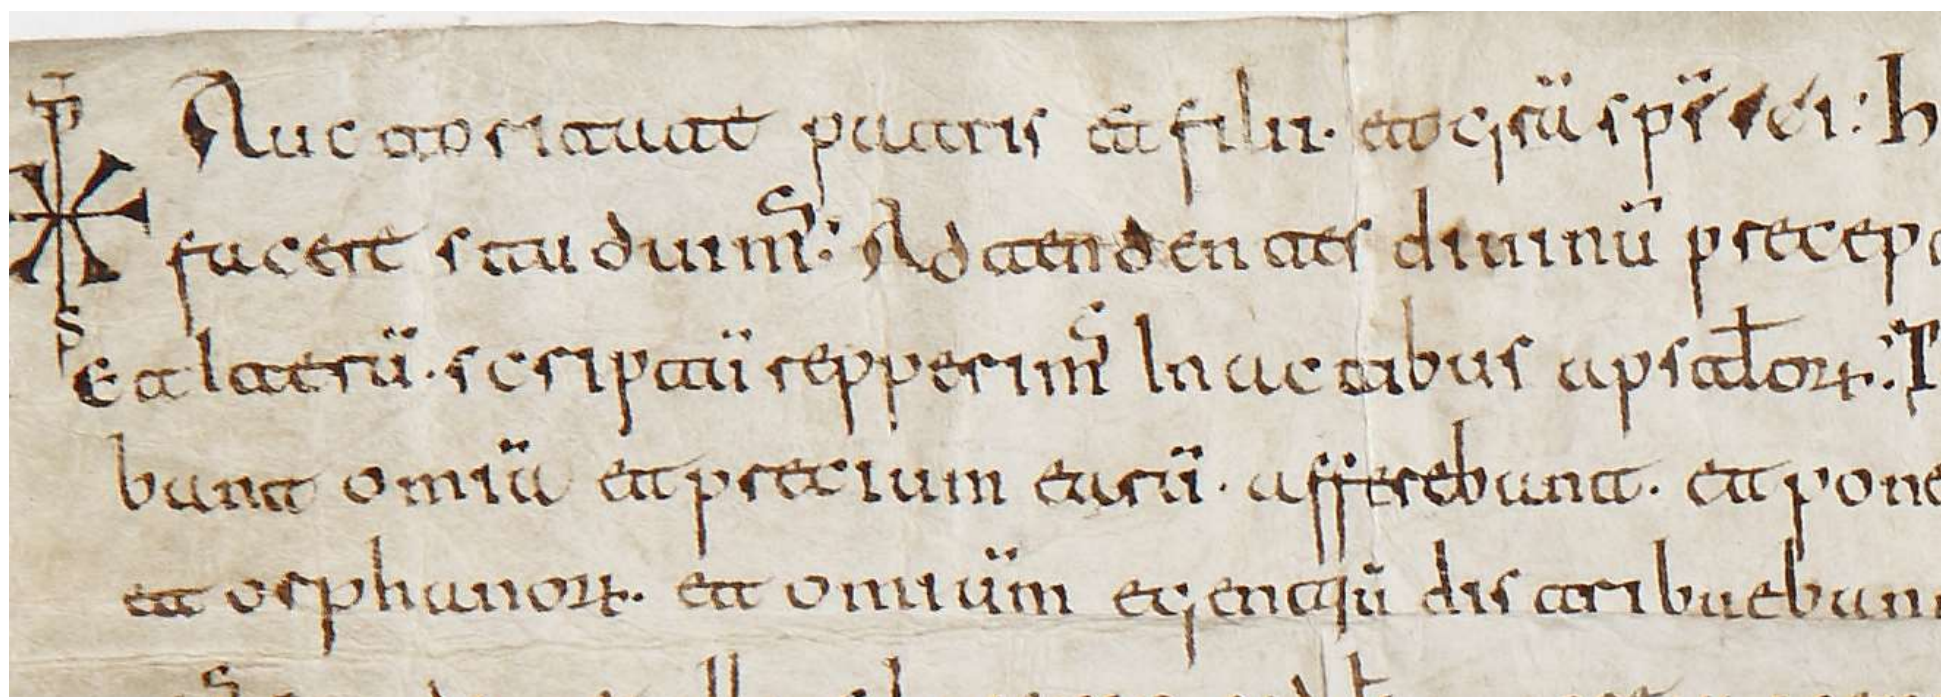 Auctoritate patris et filii. spũ sci: h
facere studuimˢ: Adtendentes diuinũ precept
Et Iterũ. scriptũ repperimˢ In actibus apstłorꝝ: T
bant omiũ et precium earũ. afferebant. et pone
et orphanorꝝ. et omiũm egentiũ distribueban